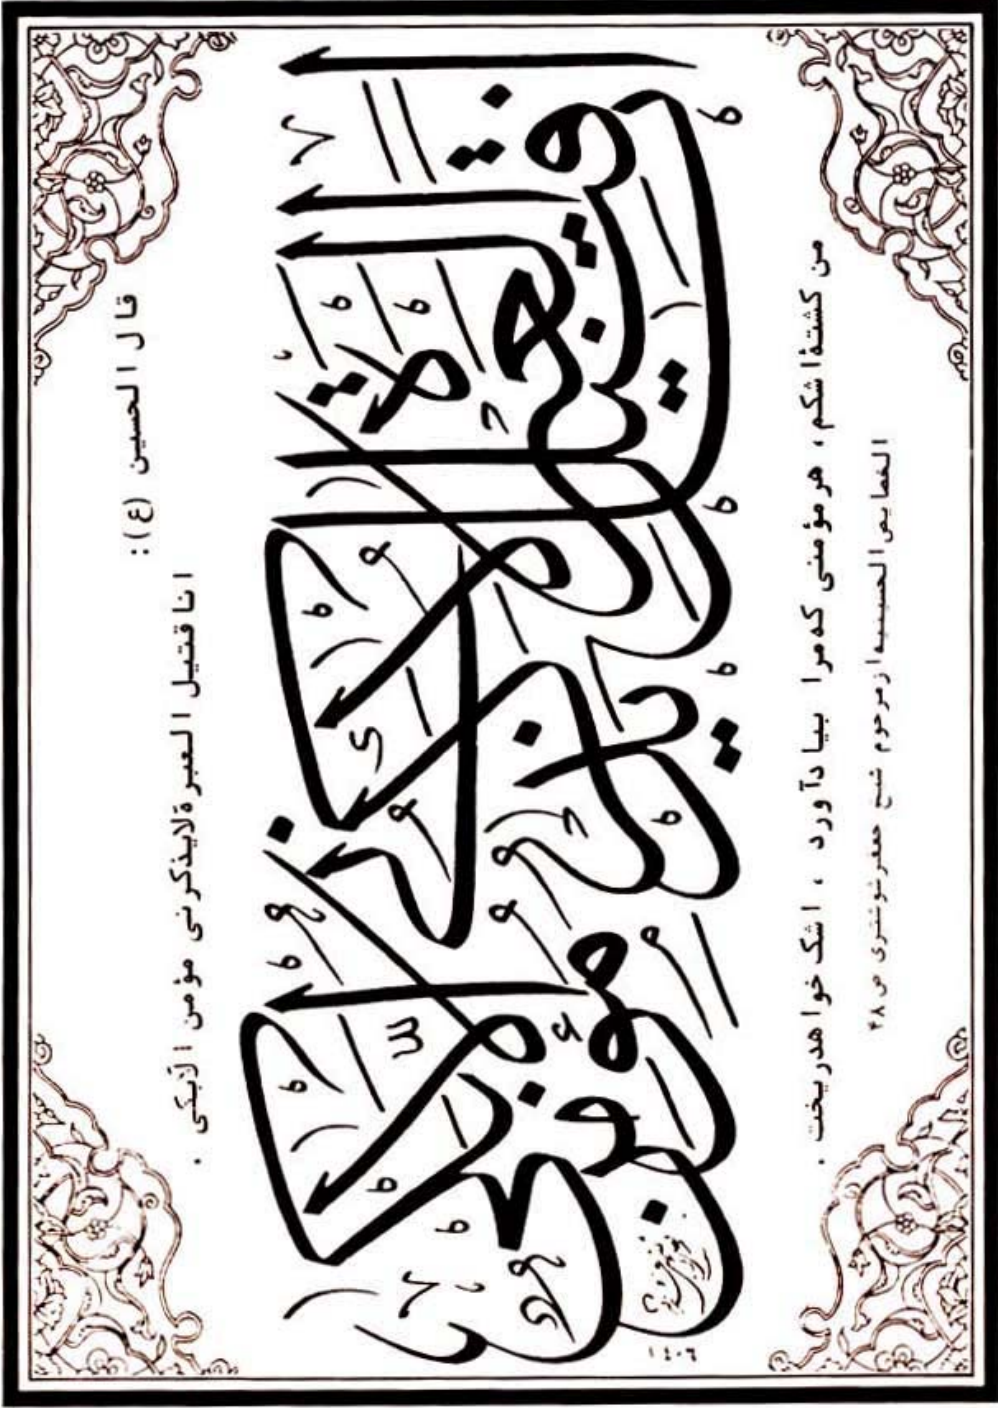 قال الحسین (ع):
انا قتیل العبرة لایذکرنی مؤمن الّابَکی .
أَنَا قَتيلُ الْعَبْرَةِ لا يَذْكُرُني مُؤْمِنٌ اِلّا بَكى
١٤٠٦
من کشتهٔ اشکم ، هر مؤمنی که مرا بیاد آورد ، اشک خواهد ریخت .
الخصایص الحسینیه از مرحوم شیخ جعفر شوشتری ص ۴۸